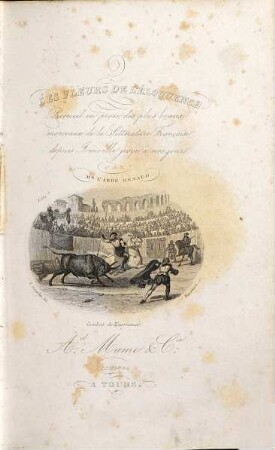 LES FLEURS DE L'ÉLOQUENCE
Recueil en prose des plus beaux
morceaux de la Littérature Française
depuis Joinville jusqu'à nos jours
PAR
M. L'ABBÉ
Combat de Taureaux
A.d Mame & C.ie
A TOURS.